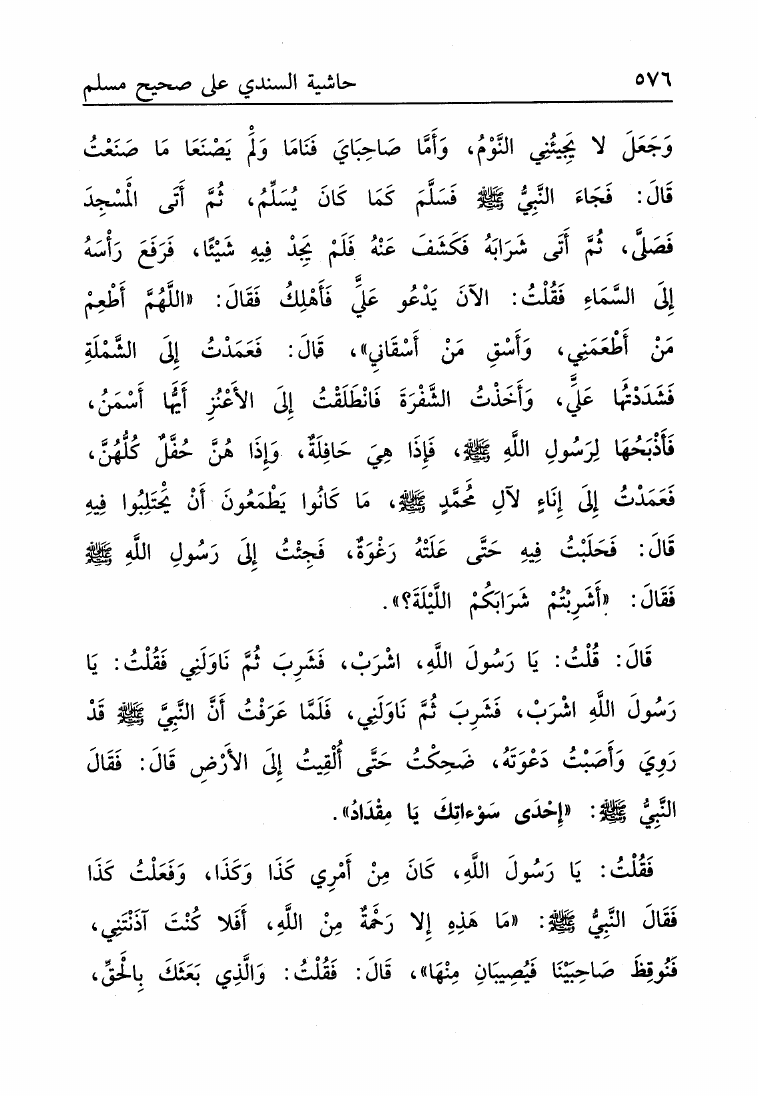 ٥٧٦ حاشية السندي على صحيح مسلم
وَجَعَلَ لا يَجِيئُنِي النَّوْمُ، وَأَمَّا صَاحِبَايَ فَنَامَا وَلَمْ يَصْنَعَا مَا صَنَعْتُ
قَالَ: فَجَاءَ النَّبِيُّ ﷺ فَسَلَّمَ كَمَا كَانَ يُسَلِّمُ، ثُمَّ أَتَى الْمَسْجِدَ
فَصَلَّى، ثُمَّ أَتَى شَرَابَهُ فَكَشَفَ عَنْهُ فَلَمْ يَجِدْ فِيهِ شَيْئًا، فَرَفَعَ رَأْسَهُ
إِلَى السَّمَاءِ فَقُلْتُ: الآنَ يَدْعُو عَلَيَّ فَأَهْلِكُ فَقَالَ: «اللَّهُمَّ أَطْعِمْ
مَنْ أَطْعَمَنِي، وَأَسْقِ مَنْ أَسْقَانِي»، قَالَ: فَعَمَدْتُ إِلَى الشَّمْلَةِ
فَشَدَدْتُهَا عَلَيَّ، وَأَخَذْتُ الشَّفْرَةَ فَانْطَلَقْتُ إِلَى الأَعْنُزِ أَيُّهَا أَسْمَنُ،
فَأَذْبَحُهَا لِرَسُولِ اللَّهِ ﷺ، فَإِذَا هِيَ حَافِلَةٌ، وَإِذَا هُنَّ حُفَّلٌ كُلُّهُنَّ،
فَعَمَدْتُ إِلَى إِنَاءٍ لآلِ مُحَمَّدٍ ﷺ، مَا كَانُوا يَطْمَعُونَ أَنْ يَحْتَلِبُوا فِيهِ
قَالَ: فَحَلَبْتُ فِيهِ حَتَّى عَلَتْهُ رَغْوَةٌ، فَجِئْتُ إِلَى رَسُولِ اللَّهِ ﷺ
فَقَالَ: «أَشَرِبْتُمْ شَرَابَكُمْ اللَّيْلَةَ؟».
قَالَ: قُلْتُ: يَا رَسُولَ اللَّهِ، اشْرَبْ، فَشَرِبَ ثُمَّ نَاوَلَنِي فَقُلْتُ: يَا
رَسُولَ اللَّهِ اشْرَبْ، فَشَرِبَ ثُمَّ نَاوَلَنِي، فَلَمَّا عَرَفْتُ أَنَّ النَّبِيَّ ﷺ قَدْ
رَوِيَ وَأَصَبْتُ دَعْوَتَهُ، ضَحِكْتُ حَتَّى أُلْقِيتُ إِلَى الأَرْضِ قَالَ: فَقَالَ
النَّبِيُّ ﷺ: «إِحْدَى سَوْءاتِكَ يَا مِقْدَادُ».
فَقُلْتُ: يَا رَسُولَ اللَّهِ، كَانَ مِنْ أَمْرِي كَذَا وَكَذَا، وَفَعَلْتُ كَذَا
فَقَالَ النَّبِيُّ ﷺ: «مَا هَذِهِ إِلا رَحْمَةٌ مِنْ اللَّهِ، أَفَلا كُنْتَ آذَنْتَنِي،
فَنُوقِظَ صَاحِبَيْنَا فَيُصِيبَانِ مِنْهَا»، قَالَ: فَقُلْتُ: وَالَّذِي بَعَثَكَ بِالْحَقِّ،